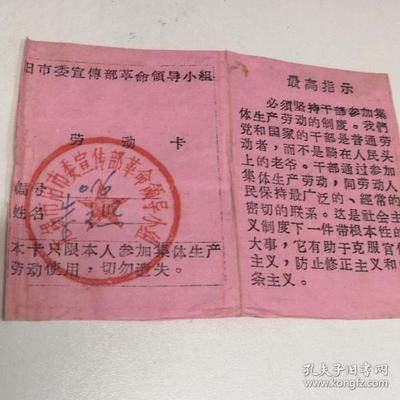 阳市委宣傳部革命領导小組
劳动卡
编号 016
姓名
本卡只限本人参加集体生产
劳动使用，切勿遗失。
市委宣传部革命領导小组
最高指示
必须坚持干部参加集
体生产劳动的制度。我們
党和国家的干部是普通劳
动者，而不是騎在人民头
上的老爷。干部通过参加
集体生产劳动，同劳动人
民保持最广泛的、經常的
密切的联系。这是社会主
义制度下一件带根本性的
大事，它有助于克服官僚
主义，防止修正主义和
条主义。
孔夫子旧书网